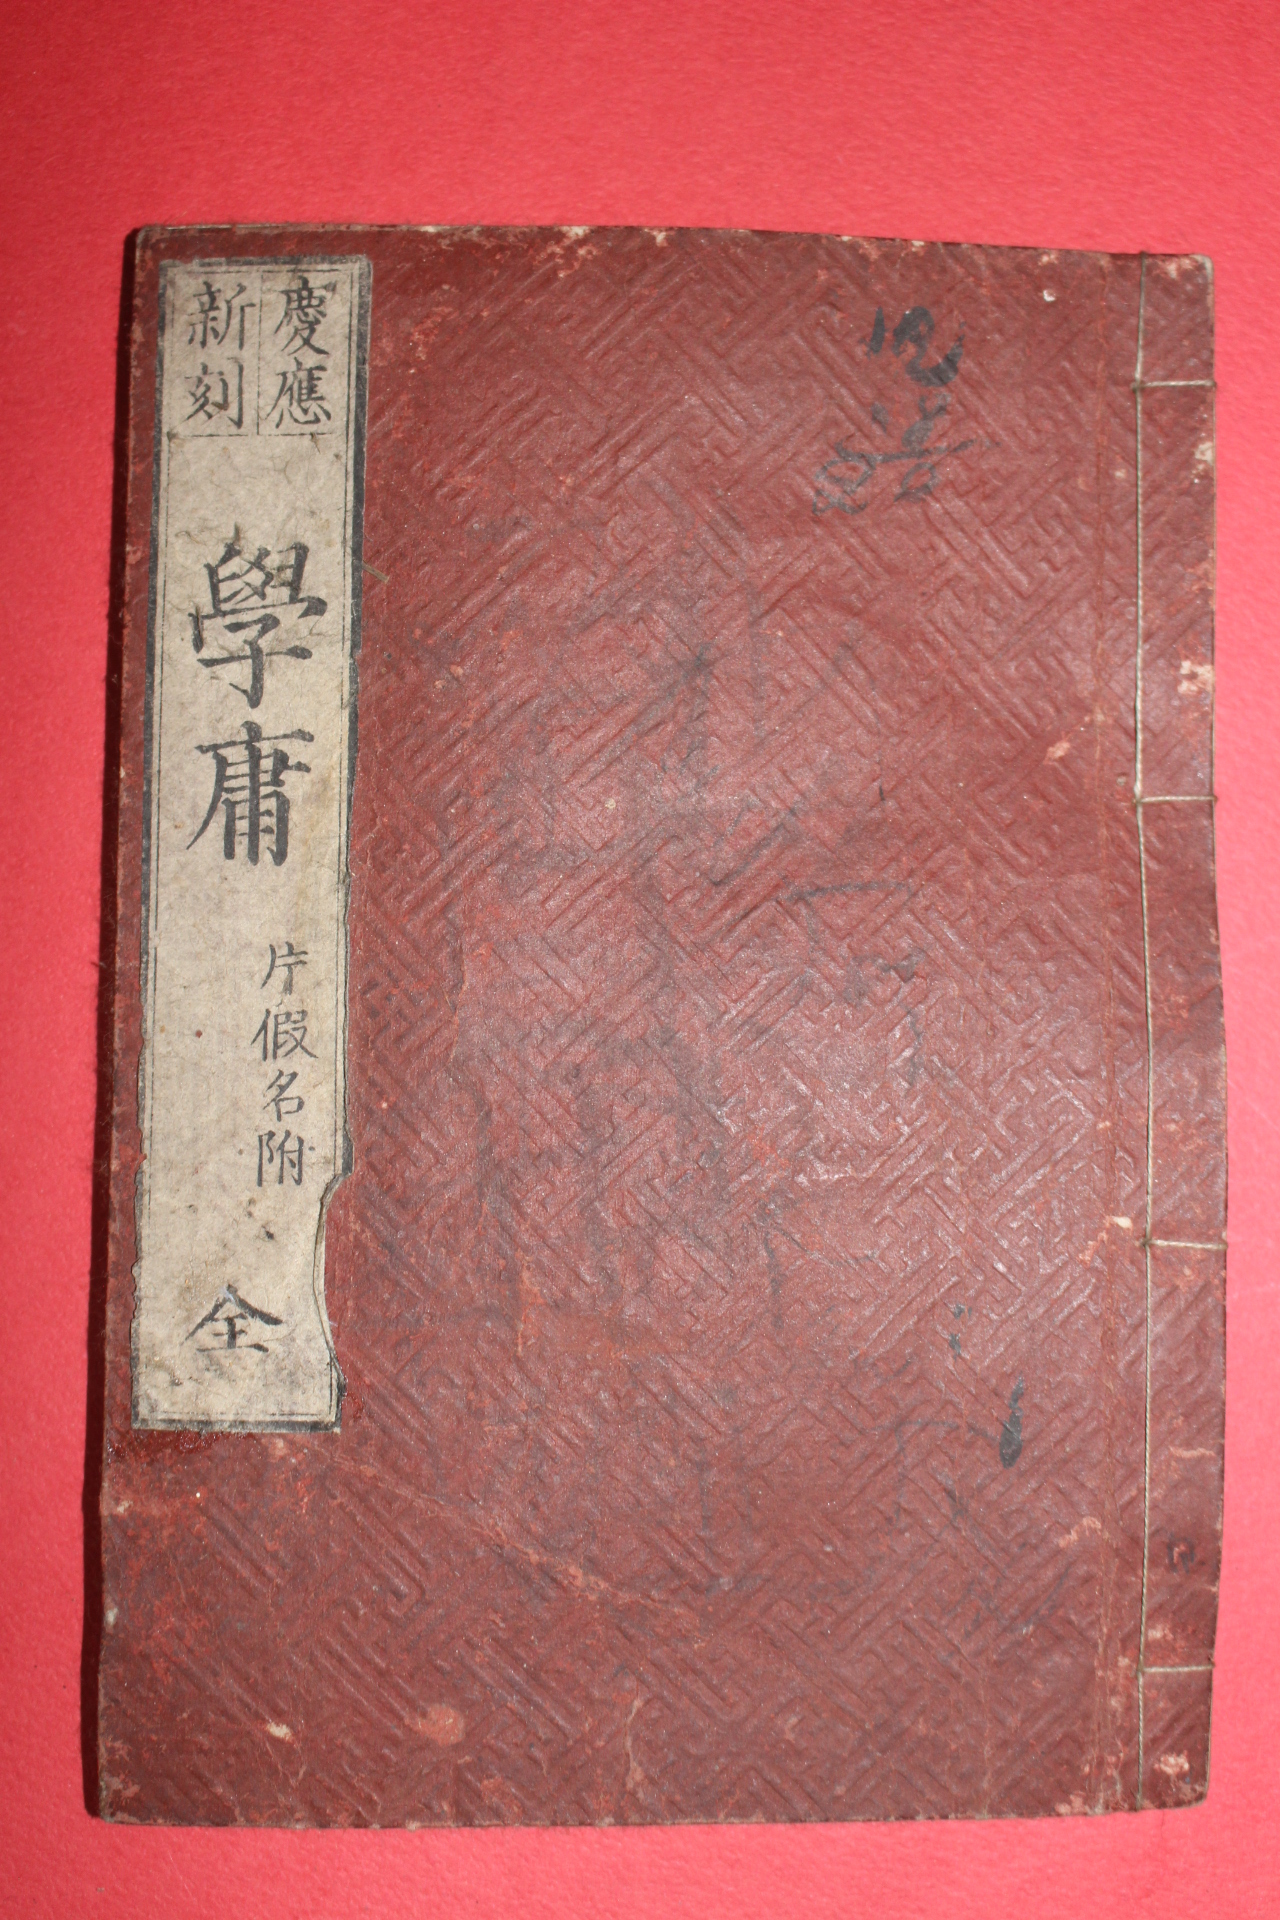 慶應
新刻
學庸
片假名附
全